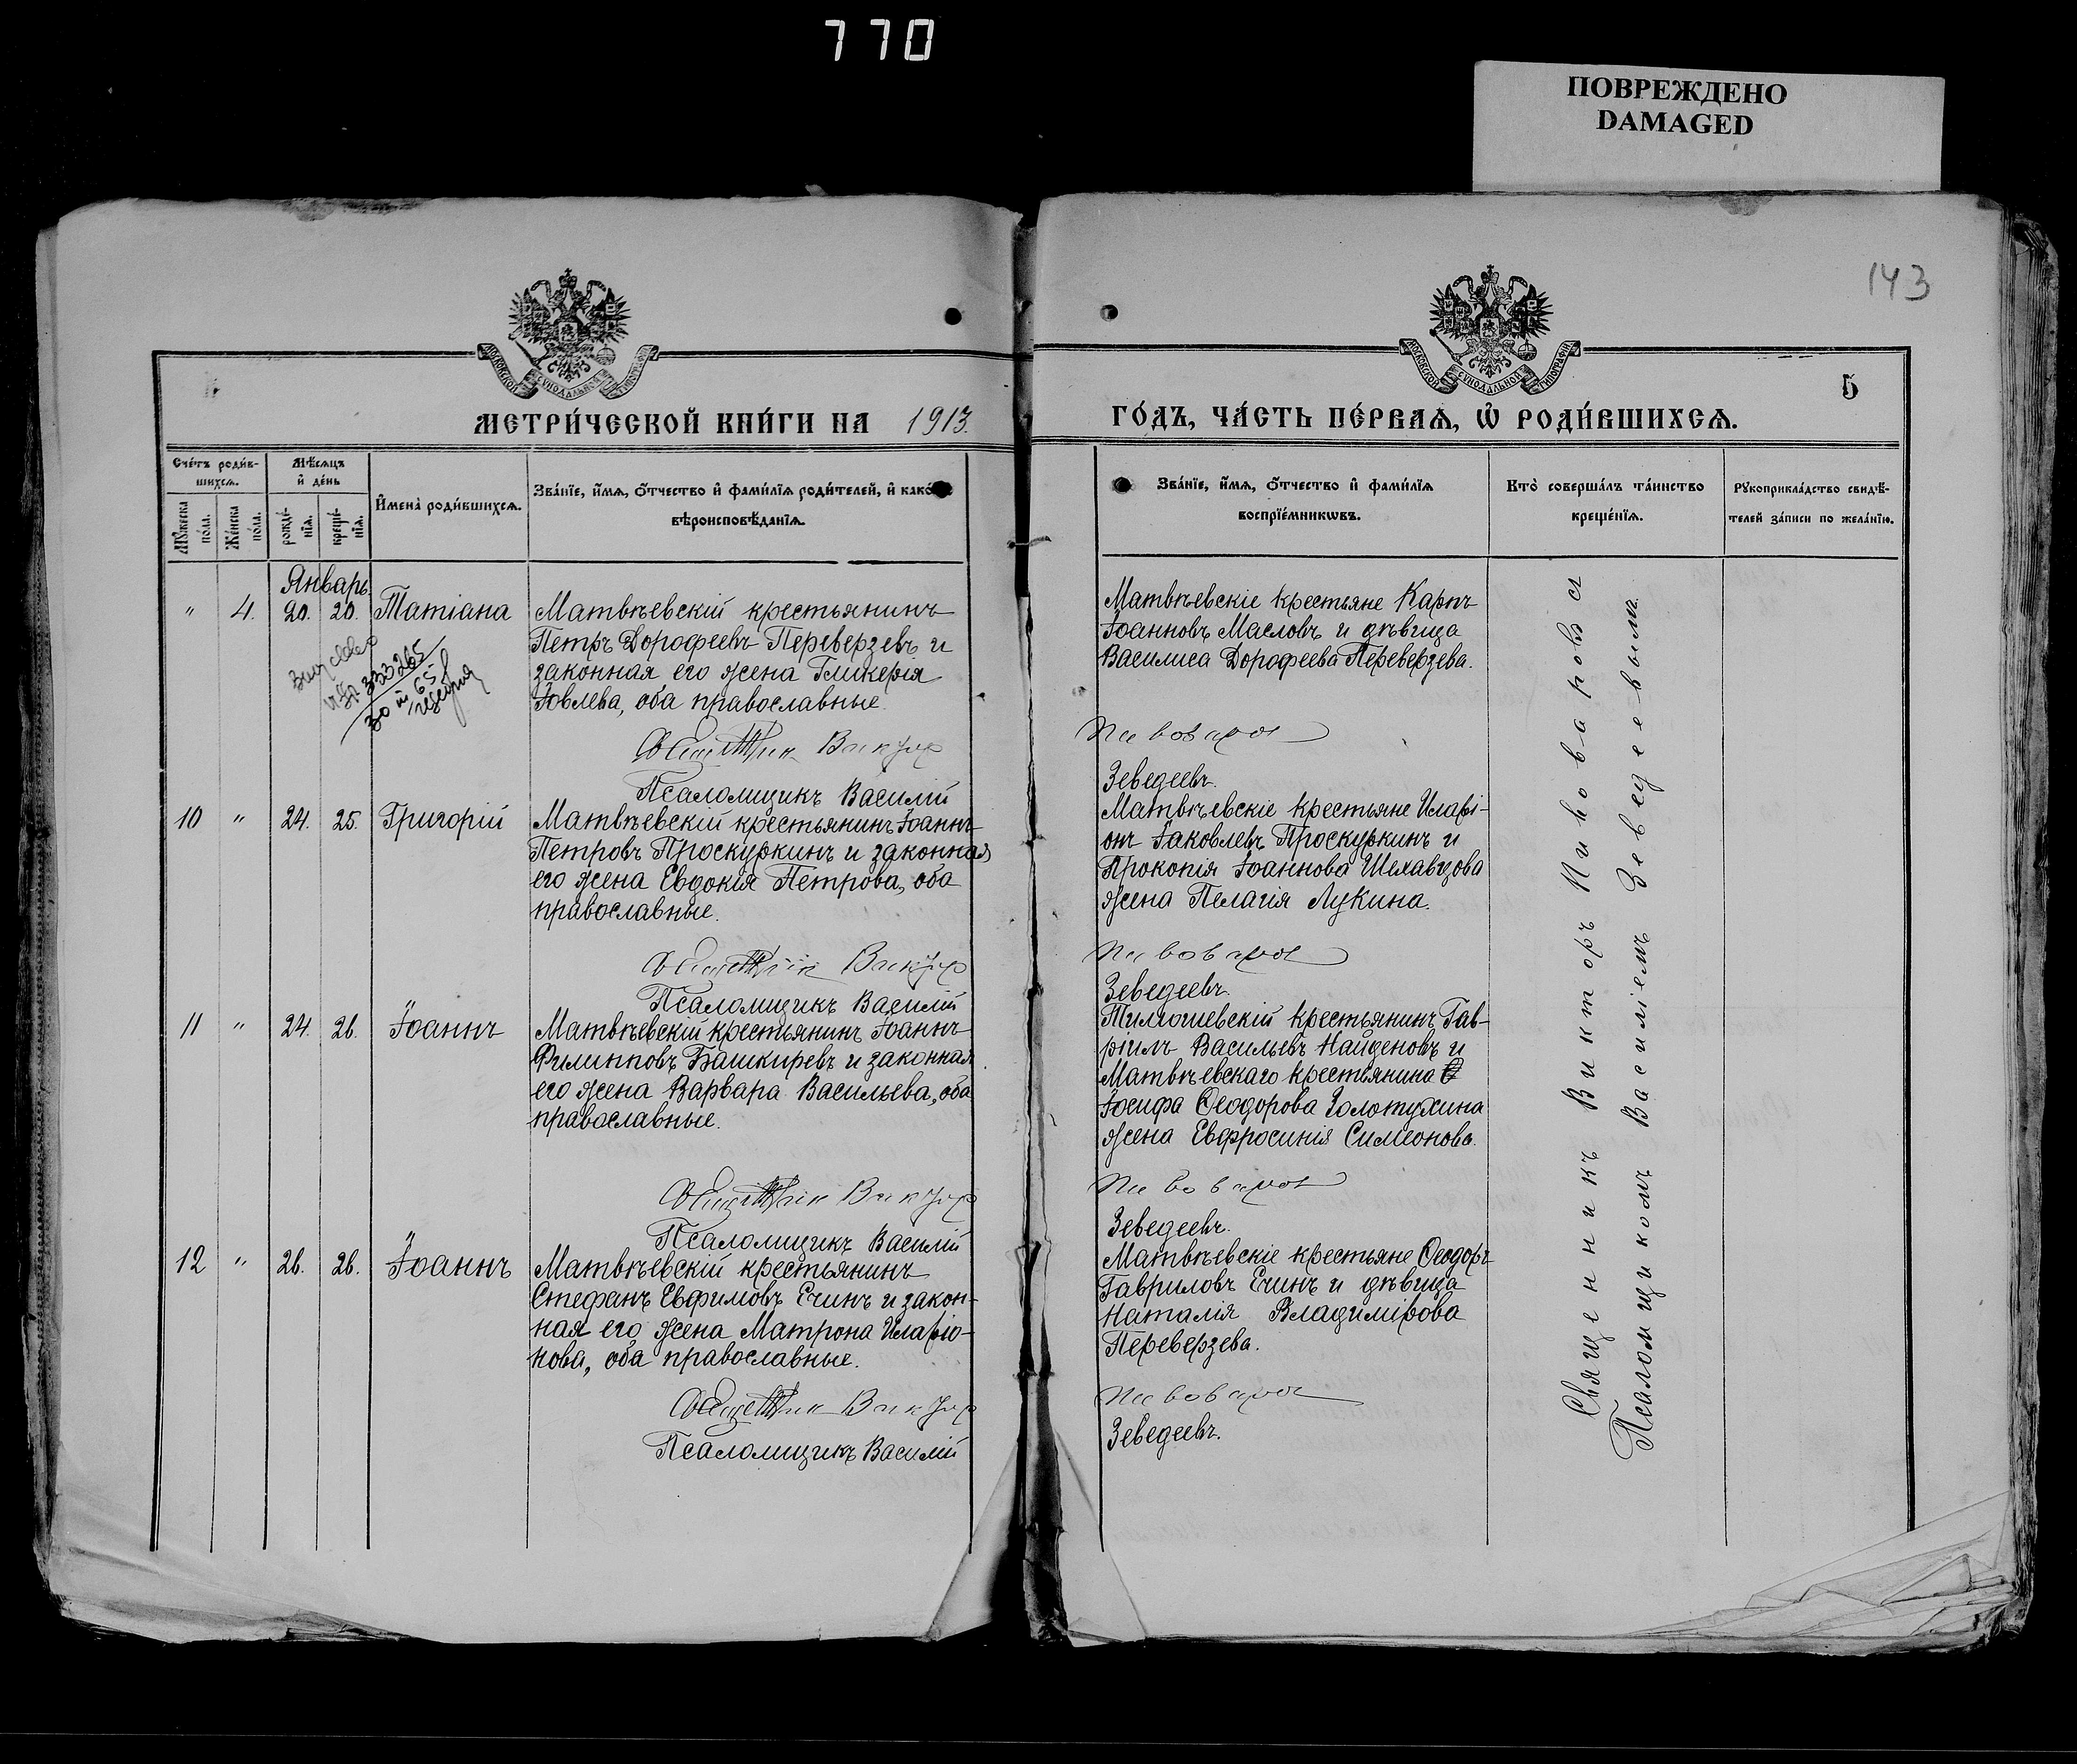 770
ПОВРЕЖДЕНО
DAMAGED
143
МОСКОВСКОЙ СѴНОДАЛЬНОЙ ТИПОГРАФІИ
МОСКОВСКОЙ СѴНОДАЛЬНОЙ ТИПОГРАФІИ
5
МЕТРИ́ЧЕСКОЙ КНИ́ГИ НА 1913.
ГО́ДЪ, ЧА́СТЬ ПЕ́РВАѦ, Ѡ҆ РОДИ́ВШИХСѦ.
Сче́тъ роди́в-
шихсѧ.
Мꙋ́жеска
по́ла.
Же́нска
по́ла.
Мѣ́сѧцъ
и҆ де́нь
рожде́-
нїѧ.
креще́-
нїѧ.
И҆мена̀ роди́вшихсѧ.
Зва́нїе, и҆́мѧ, ѻ҆́тчество и҆ фами́лїѧ роди́телей, и҆ како́гѡ
вѣроисповѣ́данїѧ.
Зва́нїе, и҆́мѧ, ѻ҆́тчество и҆ фами́лїѧ
воспрїе́мникѡвъ.
Кто̀ соверша́лъ та́инство
креще́нїѧ.
Рꙋкоприкла́дство свидѣ́-
телей за́писи по жела́нїю.
Январь
" 4. 20. 20. Татіана
Матвѣевскій крестьянинъ
Петръ Дорофеевъ Переверзевъ и
законная его жена Гликерія
Іовлева, оба православные.
333265
65
Священник Виктор
Псаломщикъ Василій
Матвѣевскіе крестьяне Карпъ
Іоанновъ Масловъ и дѣвица
Василиса Дорофеева Переверзева.
Пивоваров
Зеведеевъ.
10 " 24. 25. Григорій
Матвѣевскій крестьянинъ Іоаннъ
Петровъ Проскуркинъ и законная
его жена Евдокія Петрова, оба
православные.
Священник Виктор
Псаломщикъ Василій
Матвѣевскіе крестьяне Иларі-
онъ Іаковлевъ Проскуркинъ и
Прокопія Іоаннова
жена Пелагія Лукина.
Пивоваров
Зеведеевъ.
11 " 24. 26. Іоаннъ
Матвѣевскій крестьянинъ Іоаннъ
Филипповъ Башкиревъ и законная
его жена Варвара Васильева, оба
православные.
Священник Виктор
Псаломщикъ Василій
Тимошевскій крестьянинъ Гав-
ріилъ Васильевъ Найденовъ и
Матвѣевскаго крестьянина
Іосифа Ѳеодорова Золотухина
жена Евфросинія Симеонова.
Пивоваров
Зеведеевъ.
12 " 26. 26. Іоаннъ
Матвѣевскій крестьянинъ
Стефанъ Евфимовъ Ечинъ и закон-
ная его жена Матрона Иларіо-
нова, оба православные.
Священник Виктор
Псаломщикъ Василій
Матвѣевскіе крестьяне Ѳеодоръ
Гавриловъ Ечинъ и дѣвица
Наталія Владимірова
Переверзева.
Пивоваров
Зеведеевъ.
Священникъ Викторъ Пивоваровъ съ
Псаломщикомъ Василіемъ Зеведеевымъ.